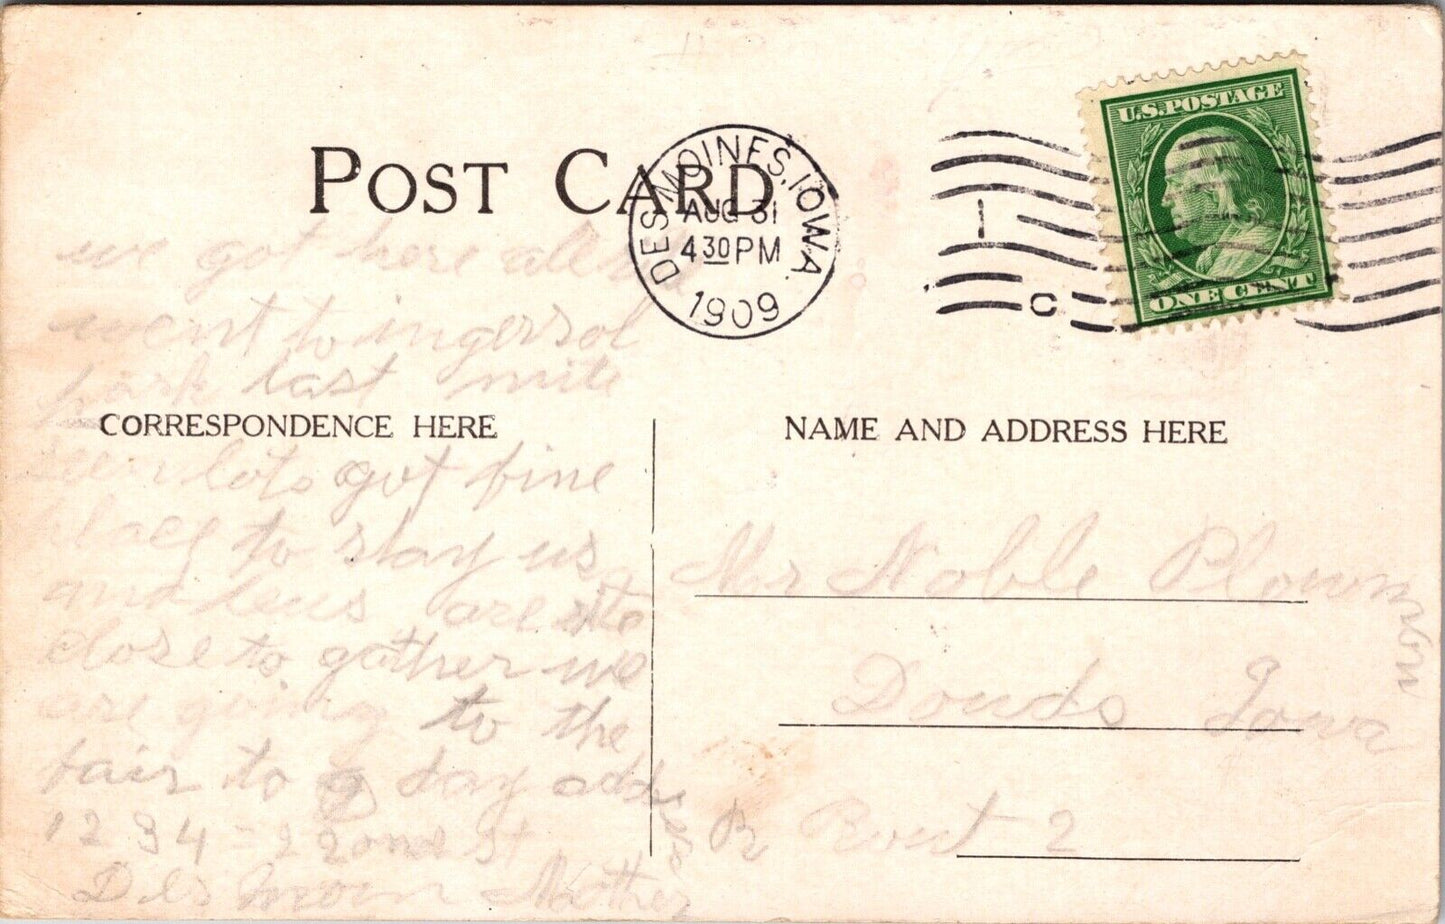 POST CARD
DES MOINES, IOWA.
AUG 31
4 30 PM
1909
1
C
U.S. POSTAGE
ONE CENT
we got here all
went to ingersol
park last nite
CORRESPONDENCE HERE
seen lots got fine
place to stay us
and are
close to gather we
are going to the
fair to day address
1234 = 22ond st
Des moin Mother
NAME AND ADDRESS HERE
Mr Noble Plowman
Douds Iowa
R Rout 2